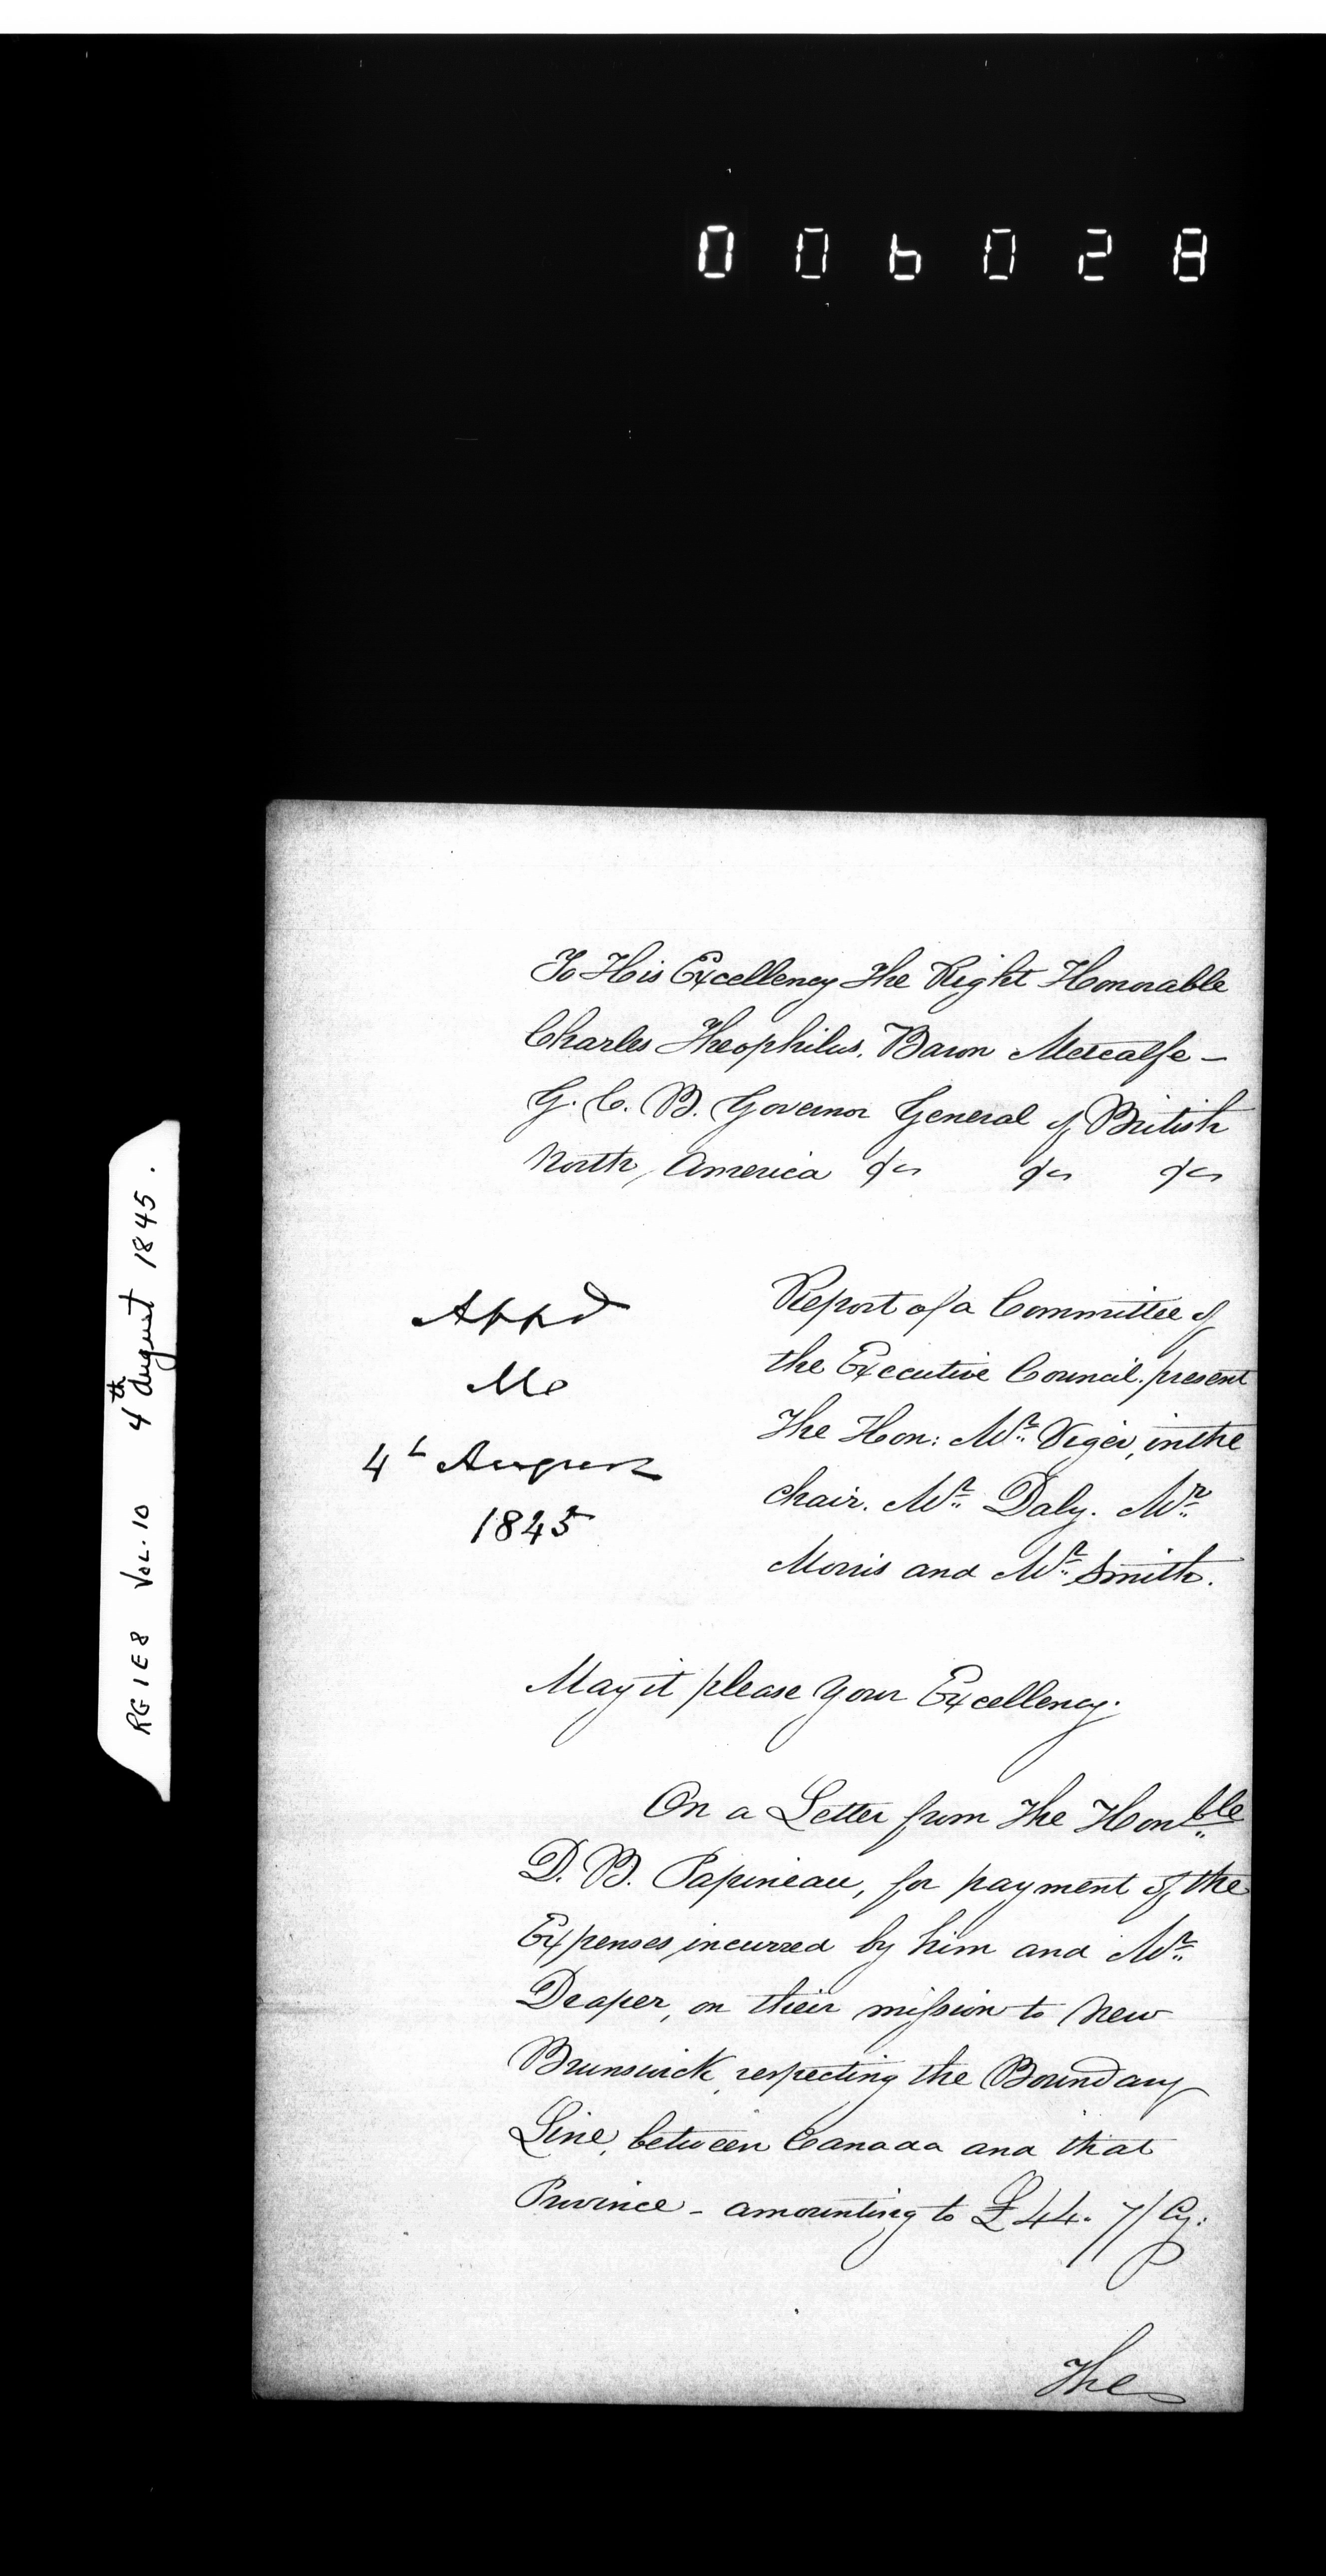 006028
To His Excellency The Right Honorable
Charles Theophilus, Baron Metcalfe –
G. C. B. Governor General of British
North America &c &c &c
Appd
Me
4th August
1845
Report of a Committee of
the Executive Council. present
The Hon: Mr. Viger, in the
chair. Mr. Daly. Mr.
Morris and Mr. Smith.
May it please Your Excellency.
On a Letter from The Honble
D. B. Papineau, for payment of the
Expenses incurred by him and Mr.
Draper, on their mission to New
Brunswick respecting the Boundary
Line, between Canada and that
Province – amounting to £44. 7/ Cy:
The
RG 1 E 8 VOL. 10 4th August 1845.